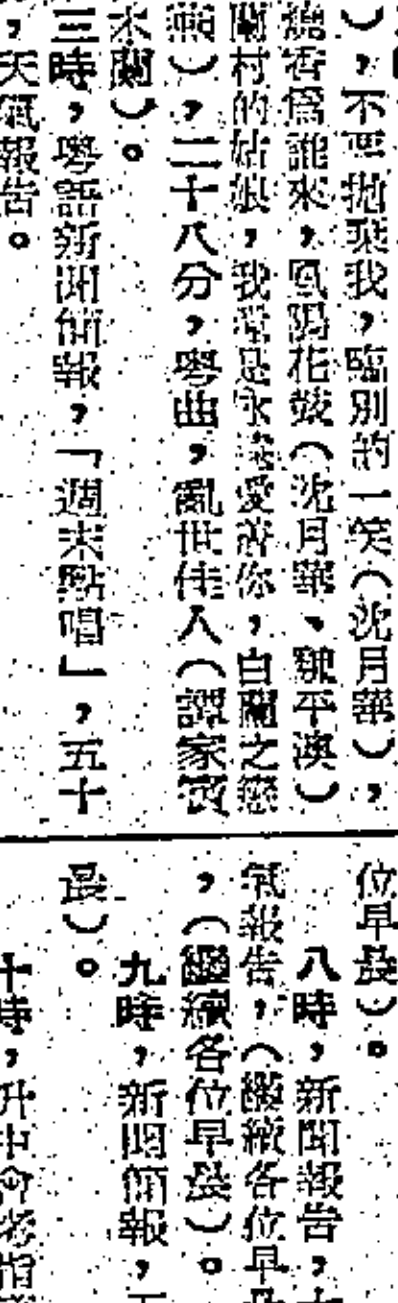 ），不要拋棄我，臨別的一笑（沈月華），
燒香爲誰來，鳳陽花鼓（沈月華、平澳）
蘭村的姑娘，我還是永遠愛着你，白蘭之戀
，二十八分，粵曲，亂世佳人（譚家寶
木蘭）。
三時，粵語新聞簡報，「週末點唱」，五十
，天氣報告。
位早晨）。
八時，新聞報告，
氣報告，（繼續各位早
，（繼續各位早晨）。
九時，新聞簡報，
晨）。
十時，升中會考指